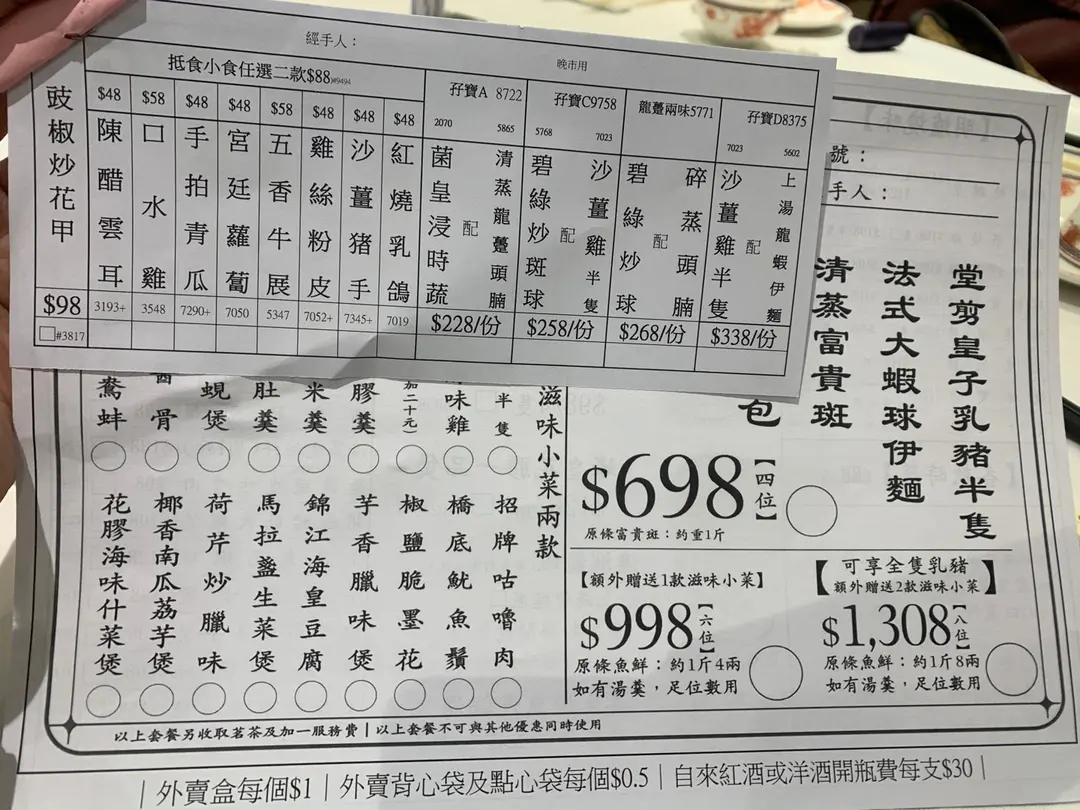 經手人：
晚市用
豉椒炒花甲
$98
#3817
抵食小食任選二款$88#9494
$48
陳醋雲耳
3193+
$58
口水雞
3548
$48
手拍青瓜
7290+
$48
宮廷蘿蔔
7050
$58
五香牛展
5347
$48
雞絲粉皮
7052+
$48
沙薑豬手
7345+
$48
紅燒乳鴿
7019
孖寶A 8722
2070
5865
菌皇浸時蔬
配
清蒸龍躉頭腩
$228/份
孖寶C9758
5768
7023
碧綠炒斑球
配
沙薑雞半隻
$258/份
龍躉兩味5771
碧綠炒球
配
碎蒸頭腩
$268/份
孖寶D8375
7023
5602
沙薑雞半隻
配
上湯龍蝦伊麵
$338/份
號：
手人：
堂剪皇子乳豬半隻
法式大蝦球伊麵
清蒸富貴斑
包
$698
【四位】
原條富貴斑：約重1斤
【額外贈送1款滋味小菜】
$998
【六位】
原條魚鮮：約1斤4兩
如有湯羹，足位數用
【可享全隻乳豬
額外贈送2款滋味小菜】
$1,308
【八位】
原條魚鮮：約1斤8兩
如有湯羹，足位數用
滋味小菜兩款
半隻
味雞
加二十元）
膠羹
米羹
肚羹
蜆煲
骨
鴦蚌
招牌咕嚕肉
橋底魷魚鬚
椒鹽脆墨花
芋香臘味煲
錦江海皇豆腐
馬拉盞生菜煲
荷芹炒臘味
椰香南瓜荔芋煲
花膠海味什菜煲
以上套餐另收取茗茶及加一服務費｜以上套餐不可與其他優惠同時使用
｜外賣盒每個$1｜外賣背心袋及點心袋每個$0.5｜自來紅酒或洋酒開瓶費每支$30｜